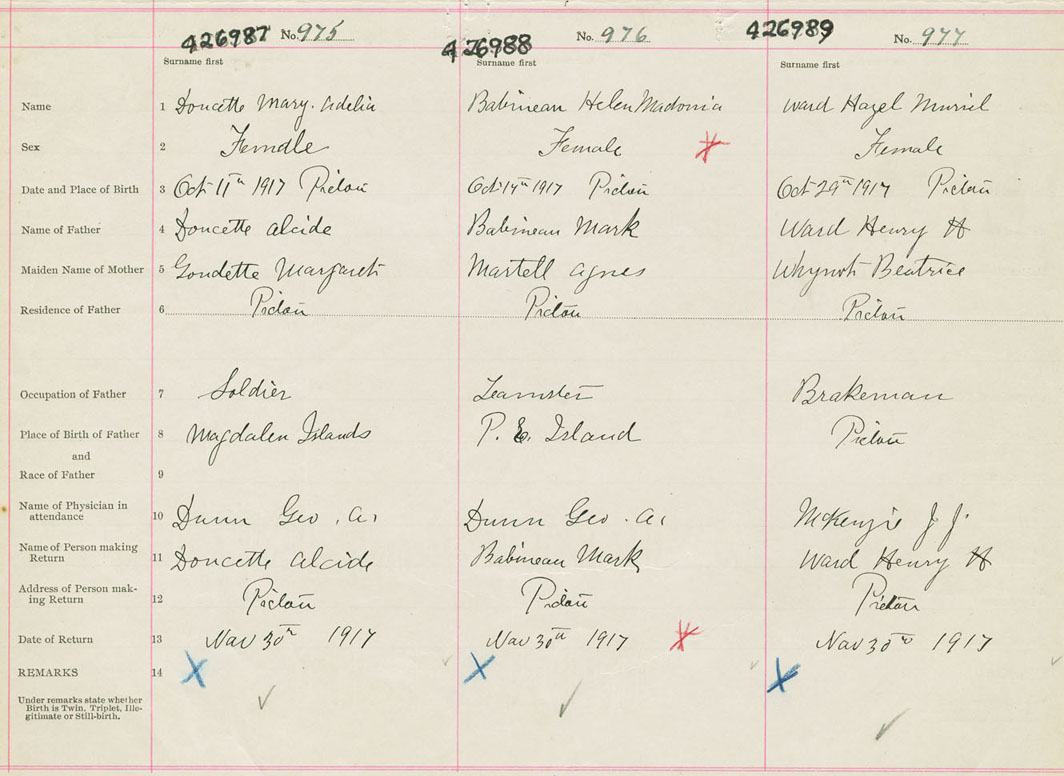 426987 No. 975 426988 No. 976 426989 No. 977
Surname first Surname first Surname first
Name 1 Doucette Mary. Adelia Babineau Helen Madonia Ward Hazel Muriel
Sex 2 Female Female Female
Date and Place of Birth 3 Oct 11th 1917 Pictou Oct 14th 1917 Pictou Oct 29th 1917 Pictou
Name of Father 4 Doucette Alcide Babineau Mark Ward Henry H
Maiden Name of Mother 5 Goudette Margaret Martell Agnes Whynot Beatrice
Residence of Father 6 Pictou Pictou Pictou
Occupation of Father 7 Soldier Teamster Brakeman
Place of Birth of Father 8 Magdalen Islands P. E. Island Pictou
and
Race of Father 9
Name of Physician in
attendance 10 Dunn Geo. A. Dunn Geo. A. McKenzie J. J.
Name of Person making
Return 11 Doucette Alcide Babineau Mark Ward Henry H
Address of Person mak-
ing Return 12 Pictou Pictou Pictou
Date of Return 13 Nov 30th 1917 Nov 30th 1917 Nov 30th 1917
REMARKS 14
Under remarks state whether
Birth is Twin, Triplet, Ille-
gitimate or Still-birth.